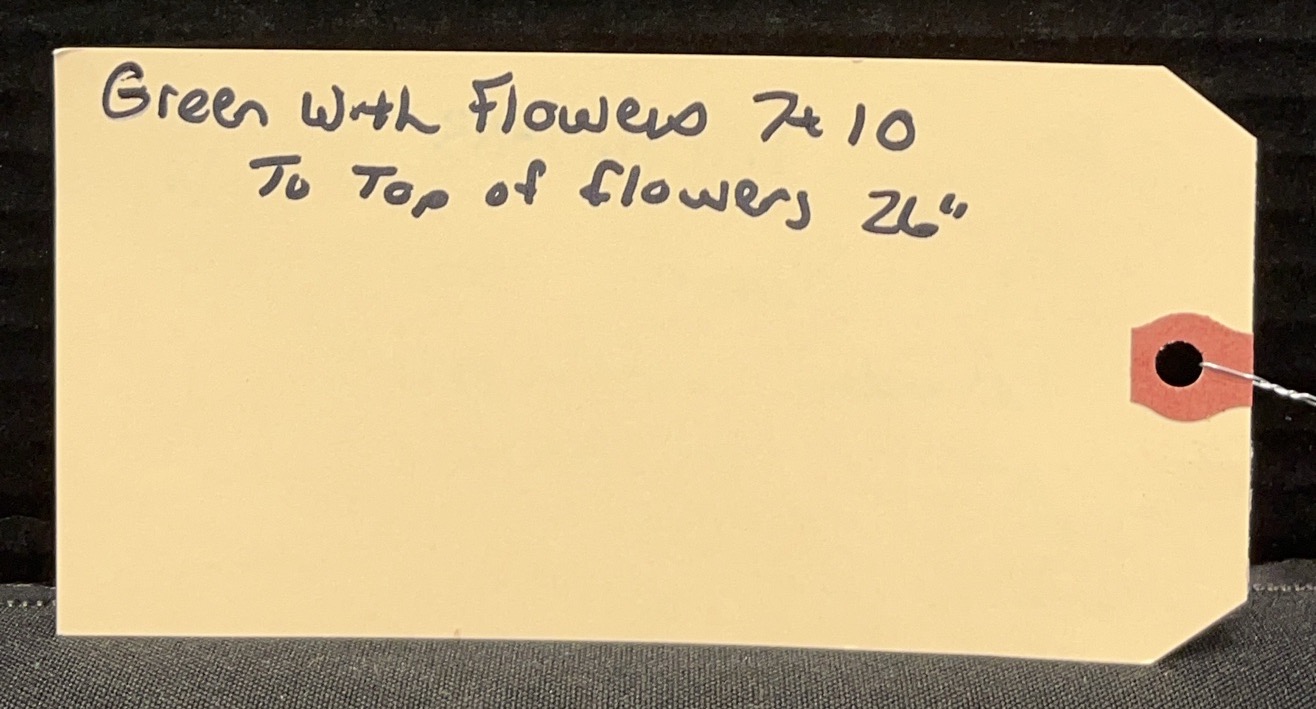 Green With Flowers 7x10
To Top of flowers 26"